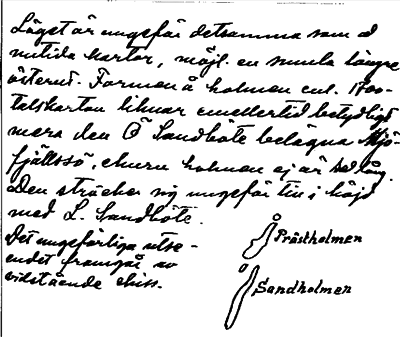 Läget är ungefär detsamma som å
nutida kartor, möjl. en smula längre
österut. Formen å holmen enl. 1700-
talskartan liknar emellertid betydligt
mera den Ö Sandböte belägna Mjö-
fjällssö, churu holmen ej är så lång.
Den sträcker sig ungefär till i höjd
med L. Sandböte.
Det ungefärliga utse-
endet framgår av
vidstående skiss.
Prästholmen
Sandholmen